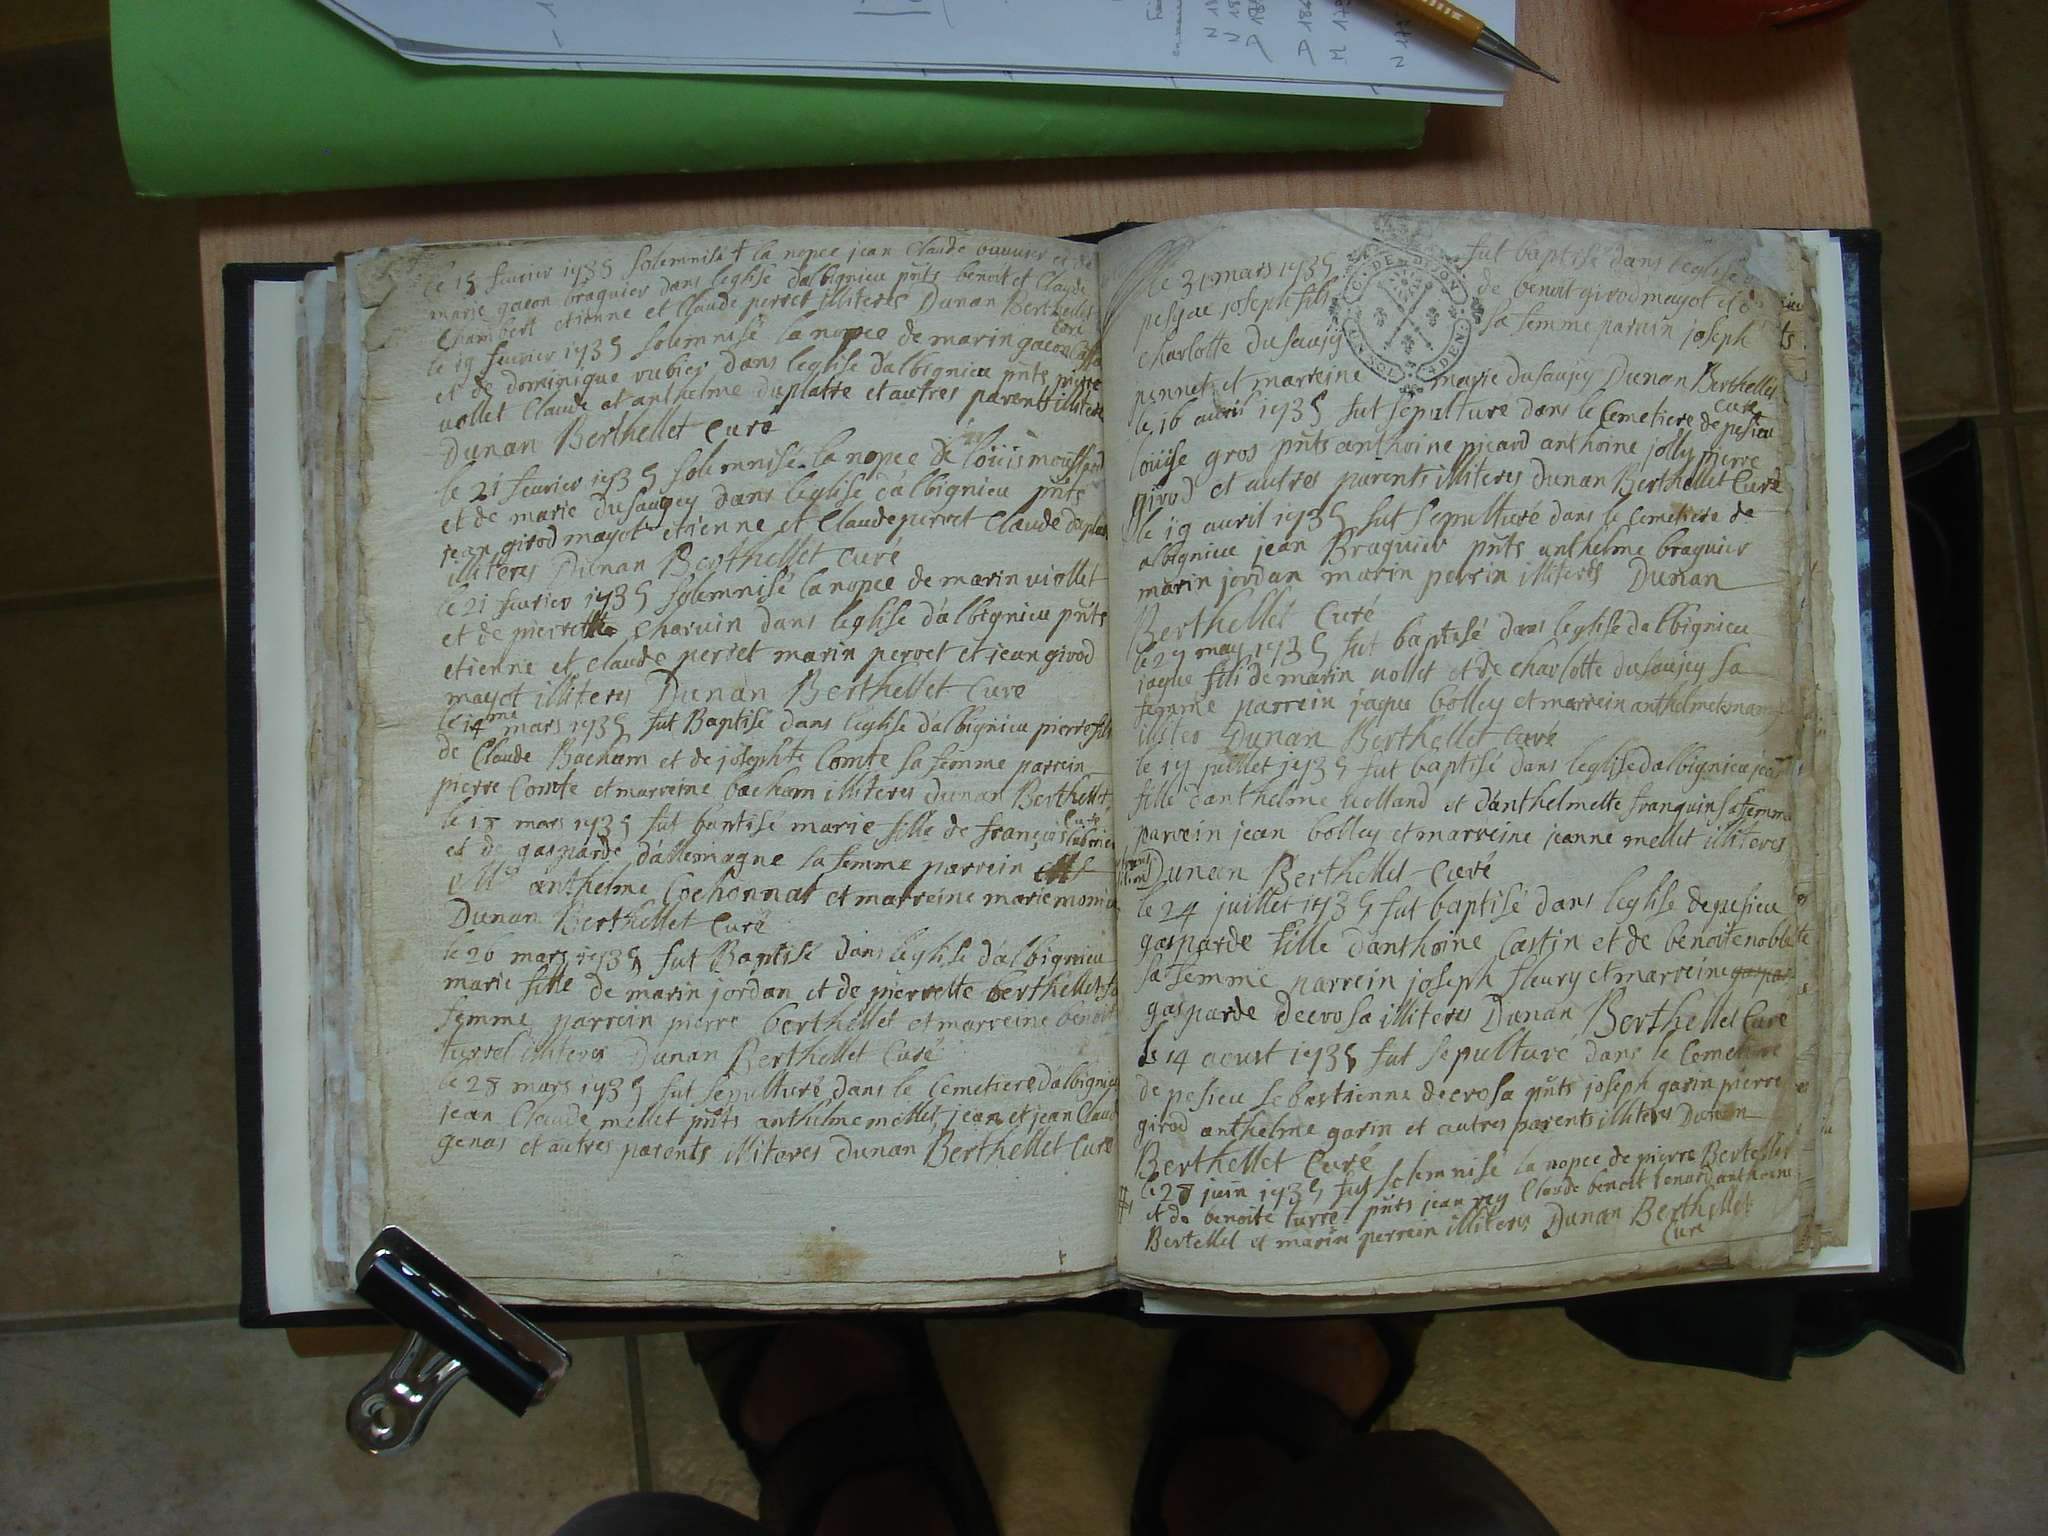 le 18 fevrier 1735 solemnisé + la nopce jean Claude bouvier et de
marie gacon braguier dans leglise dalbignieu pnts benoit et Claude
Chambert etienne et Claude perret illiteres Dunan Berthellet
Curé
le 19 fevrier 1735 solemnisé la nopce de marin gacon
et de dominique rubier dans leglise dalbignieu pnts pierre
vollet Claude et anthelme duplatre et autres parents illiteres
Dunan Berthellet Curé
le 21 fevrier 1735 solemnisé la nopce de louis moussard
et de marie dusaugey dans leglise dalbignieu pnts
jean girod mayot etienne et Claude perret Claude duplatre
illiteres Dunan Berthellet curé
le 21 fevrier 1735 solemnisé la nopce de marin viollet
et de pierrette charvin dans leglise dalbignieu pnts
etienne et claude perret marin perret et jean girod
mayot illiteres Dunan Berthellet Curé
le 14me mars 1735 fut Baptisé dans leglise dalbignieu pierre fils
de Claude Bacham et de josephte Comte sa femme parrein
pierre Comte et marreine bacham illiteres Dunan Berthellet
Curé
le 18 mars 1735 fut baptisé marie fille de françois
et de gasparde dallemagne la femme parrein
Mre anthelme Cochonnat et marreine marie
Dunan Berthellet Curé
le 26 mars 1735 fut Baptisé dans leglise dalbignieu
marie fille de marin jordan et de pierrette berthellet sa
femme parrein pierre berthellet et marreine benoite
turrel illiteres Dunan Berthellet Curé
le 28 mars 1735 fut sepulturé dans le Cemetiere dalbignieu
jean Claude mellet pnts anthelme mellet jean et jean Claude
genas et autres parents illiteres Dunan Berthellet Curé
le 31 mars 1735 fut baptisé dans leglise
pesieu joseph fils de benoit girod mayot et de
charlotte dusaujey sa femme parrein joseph
perret et marreine marie dusaujey Dunan Berthellet
Curé
le 16 avril 1735 fut sepulturé dans le Cemetiere de pesieu
louise gros pnts anthoine picard anthoine jolly pierre
girod et autres parents illiteres Dunan Berthellet Curé
le 19 avril 1735 fut sepulturé dans le Cemetiere de
albignieu jean Braguier pnts anthelme braguier
marin jordan marin perrin illiteres Dunan
Berthellet Curé
le 27 may 1735 fut baptisé dans leglise dalbignieu
jaque fils de marin vollet et de charlotte dusaujey sa
femme parrein jaque bolley et marrein anthelmete
illiteres Dunan Berthellet Curé
le 17 juillet 1735 fut baptisé dans leglise dalbignieu
fille danthelme et danthelmette franquin sa femme
parrein jean bolley et marreine jeanne mellet illiteres
Dunan Berthellet Curé
le 24 juillet 1735 fut baptisé dans leglise de pesieu
gasparde fille danthoine Castin et de benoite noblete
sa femme parrein joseph fleury et marreine gaspar
gasparde decrosa illiteres Dunan Berthellet Curé
le 14 aoust 1735 fut sepulturé dans le Cemetiere
de pesieu sebastienne decrosa pnts joseph garin pierre
girod anthelme garin et autres parents illiteres Dunan
Berthellet Curé
le 28 juin 1735 fut solemnisé la nopce de pierre Bertellet
et de benoite turrel pnts jean rey Claude benoit anthoine
Bertellet et marin perrein illiteres Dunan Berthellet
Curé